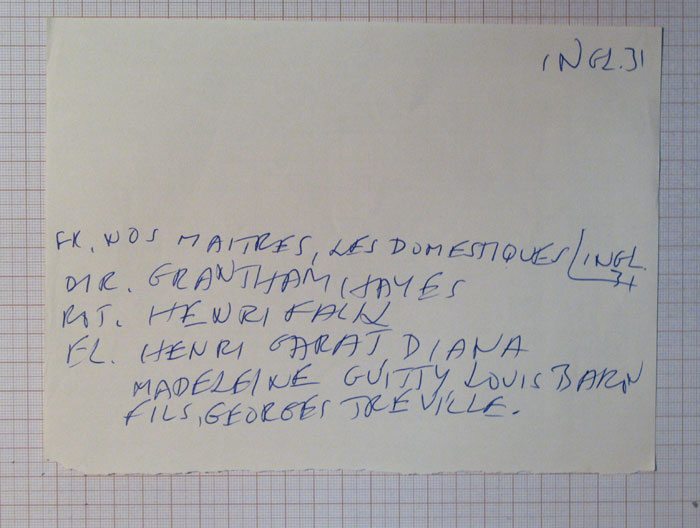 INGL.31
FR. NOS MAITRES, LES DOMESTIQUES/INGL.
31
DIR. GRANTHAM HAYES
ROT. HENRI FALK
FL. HENRI GARAT, DIANA
MADELEINE GUITTY LOUIS BARON
FILS, GEORGES TREVILLE.